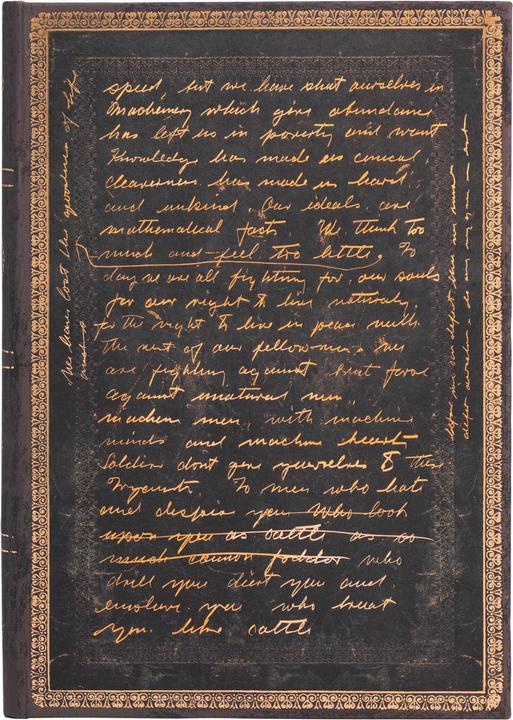 speed, but we have shut ourselves in
Machinery which give abundance
has left us in poverty and want
Knowledge has made us cynical,
cleverness has made us hard,
and unkind. Our ideals are
mathematical facts. We think too
much and feel too little. To
day we are all fighting for our souls
for our right to live naturally.
for the right to live in peace with
the rest of our fellow men. We
are fighting against brut force
against unatural men
machine men, with machine
minds and machine hearts
Soldier dont give yourselves to these
To men who hate
and despise you who look
upon you as cattle as so
much cannon fodder who
drill you diet you and
enslave you who treat
you like cattle
We have lost the of life